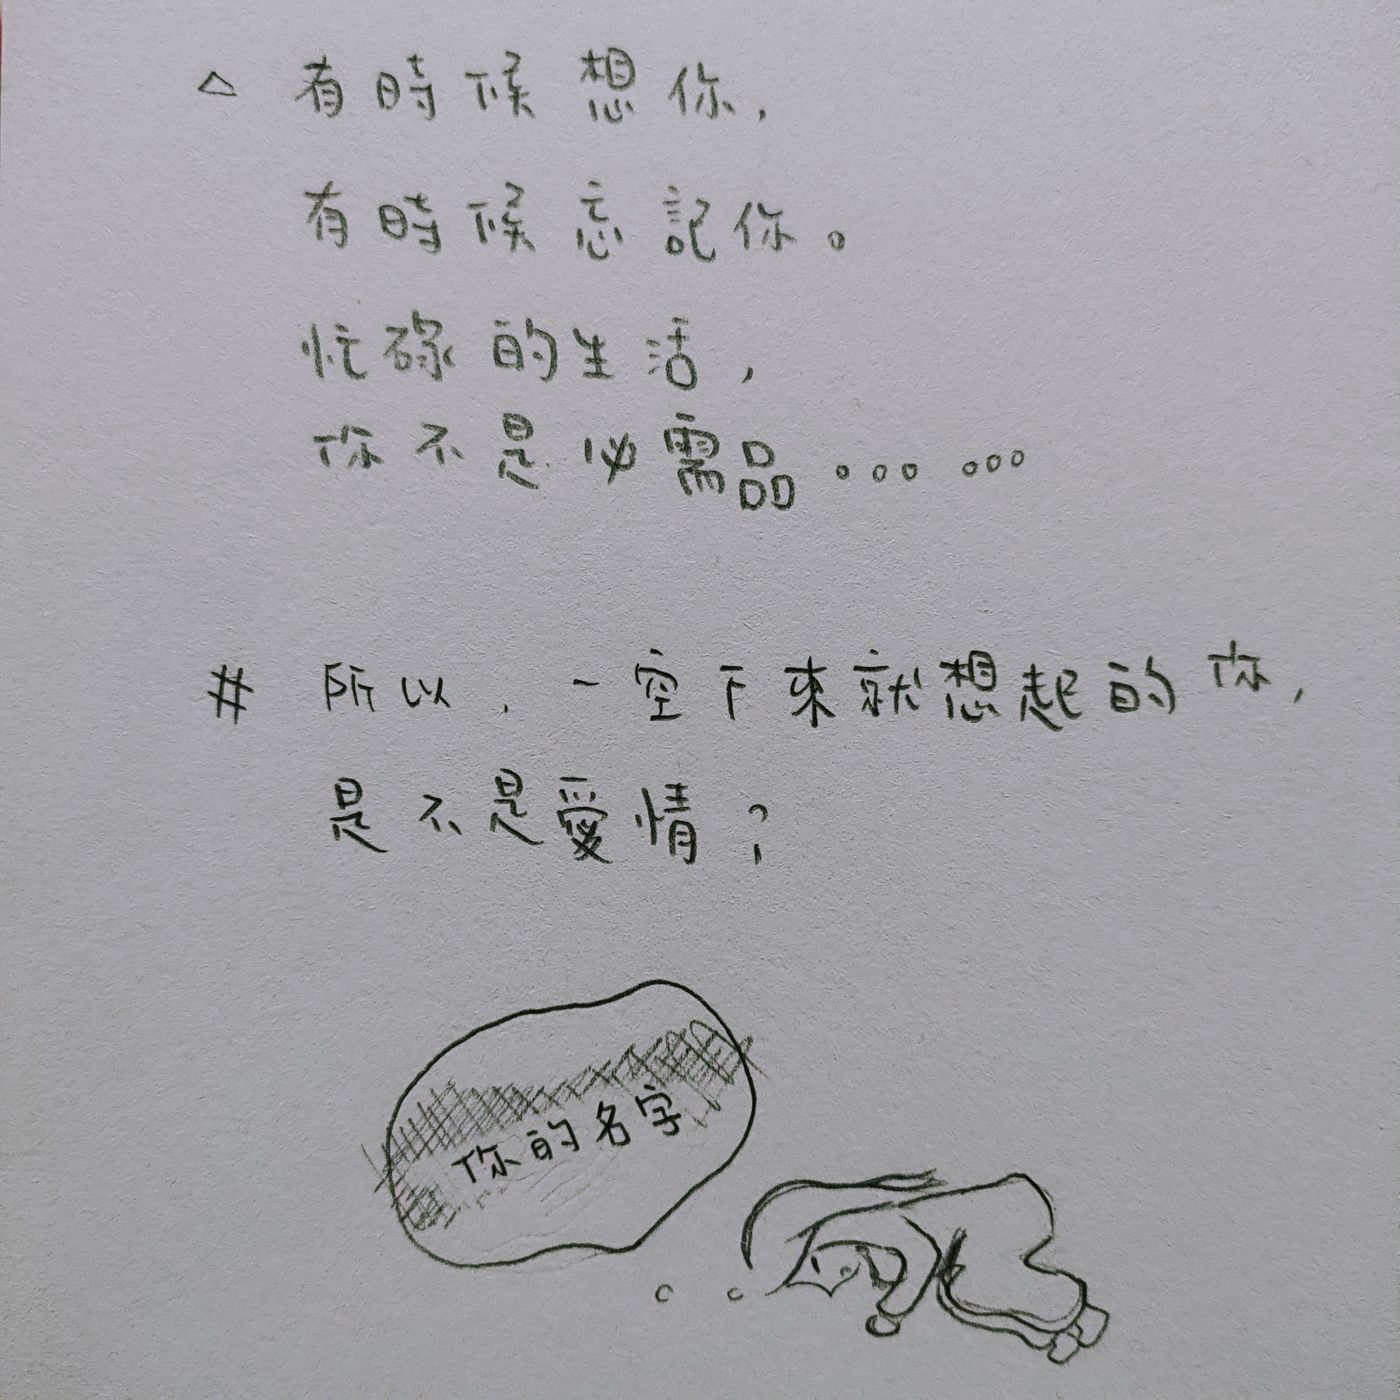 △ 有時候想你,
有時候忘記你。
忙碌的生活,
你不是必需品。。。。。。。
# 所以,一空下來就想起的你,
是不是愛情?
你的名字